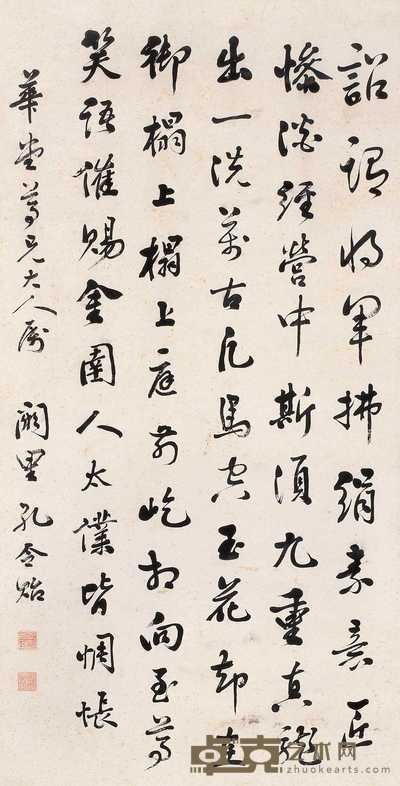 詔謂将軍拂絹素意匠
慘澹經營中斯須九重真龍
出一洗萬古凡馬空玉花却在
御榻上榻上庭前屹相向至尊
笑語催賜金圉人太僕皆惆悵
華堂尊兄大人屬 闕里孔令貽
卓克艺术网
www.zhuokearts.com